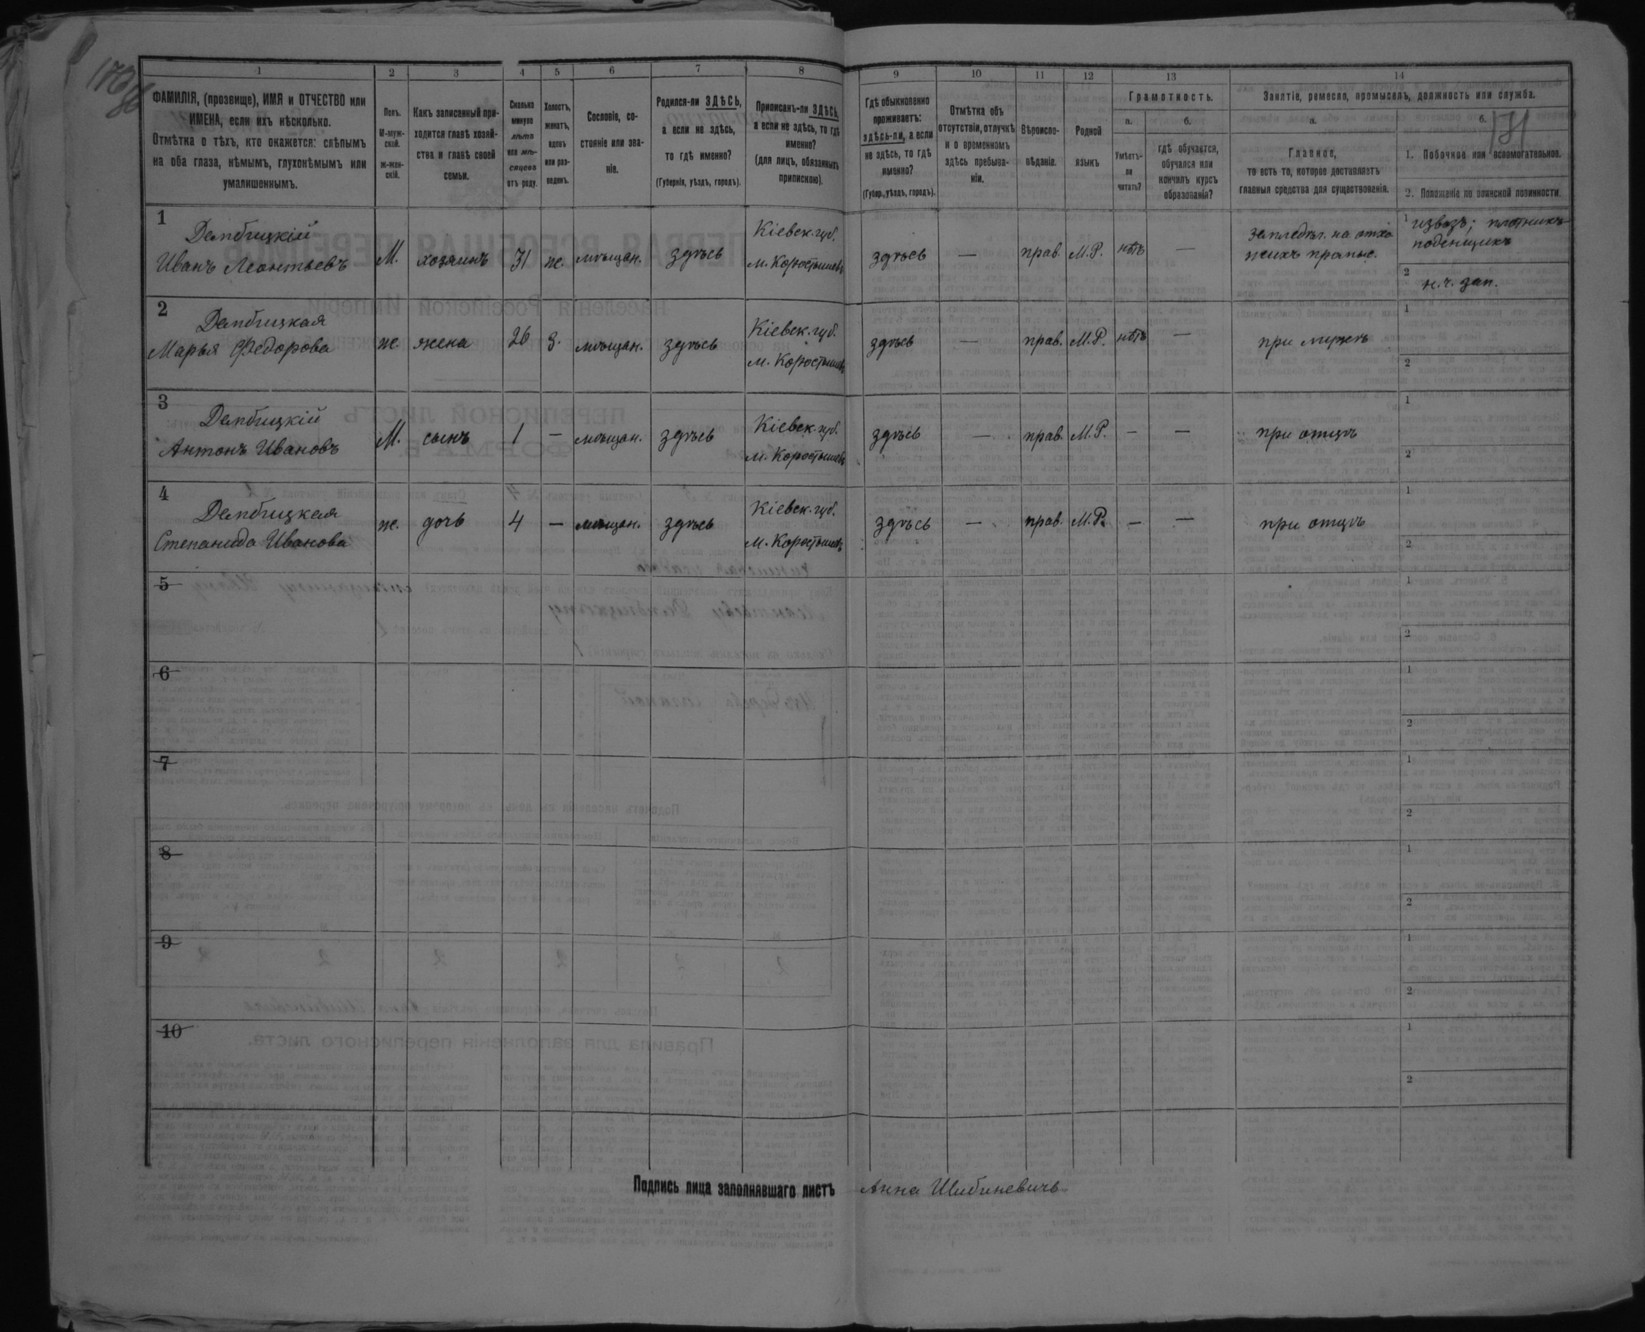 1 2 3 4 5 6 7 8 9 10 11 12 13 14
ФАМИЛІЯ, (прозвище), ИМЯ и ОТЧЕСТВО или
ИМЕНА, если ихъ нѣсколько.
Отмѣтка о тѣхъ, кто окажется: слѣпымъ
на оба глаза, нѣмымъ, глухонѣмымъ или
умалишеннымъ.
Полъ.
М-муж-
ской.
ж-жен-
скій.
Какъ записанный при-
ходится главѣ хозяй-
ства и главѣ своей
семьи.
Сколько
минуло
лѣтъ
или мѣ-
сяцевъ
отъ роду.
Холостъ,
женатъ,
вдовъ
или раз-
веденъ.
Сословіе, со-
стояніе или зва-
ніе.
Родился-ли ЗДѢСЬ,
а если не здѣсь,
то гдѣ именно?
(Губернія, уѣздъ, городъ).
Приписанъ-ли ЗДѢСЬ,
а если не здѣсь, то гдѣ
именно?
(для лицъ, обязанныхъ
припискою).
Гдѣ обыкновенно
проживаетъ:
здѣсь-ли, а если
не здѣсь, то гдѣ
именно?
(Губер., уѣздъ, городъ).
Отмѣтка объ
отсутствіи, отлучкѣ
и о временномъ
здѣсь пребыва-
ніи.
Вѣроиспо-
вѣданіе.
Родной
языкъ
Грамотность.
а.
Умѣетъ-
ли
читать?
б.
гдѣ обучается,
обучался или
кончилъ курсъ
образованія?
Занятіе, ремесло, промыселъ, должность или служба.
а.
Главное,
то есть то, которое доставляетъ
главныя средства для существованія.
б.
1. Побочное или вспомогательное.
2. Положеніе по воинской повинности.
1
Дембицкій
Иванъ Леонтьевъ
М. хозяинъ 31 ж. мѣщан. здѣсь
Кіевск. губ.
м. Коростышевъ
здѣсь — прав. М.Р. нѣтъ —
1 извозъ; плотникъ
поденщикъ
2 н. ч. зап.
2
Дембицкая
Марья Федорова
ж жена 26 з. мѣщан. здѣсь
Кіевск. губ.
м. Коростышевъ
здѣсь — прав. М.Р. нѣтъ — при мужѣ
1
2
3
Дембицкій
Антонъ Ивановъ
М. сынъ 1 — мѣщан. здѣсь
Кіевск. губ.
м. Коростышевъ
здѣсь — прав. М.Р. — — при отцѣ
1
2
4
Дембицкая
Степанида Иванова
ж. дочь 4 — мѣщан. здѣсь
Кіевск. губ.
м. Коростышевъ
здѣсь — прав. М.Р. — — при отцѣ
1
2
5
1
2
6
1
2
7
1
2
8
1
2
9
1
2
10
1
2
Подпись лица заполнявшаго листъ Анна Шибиневичъ